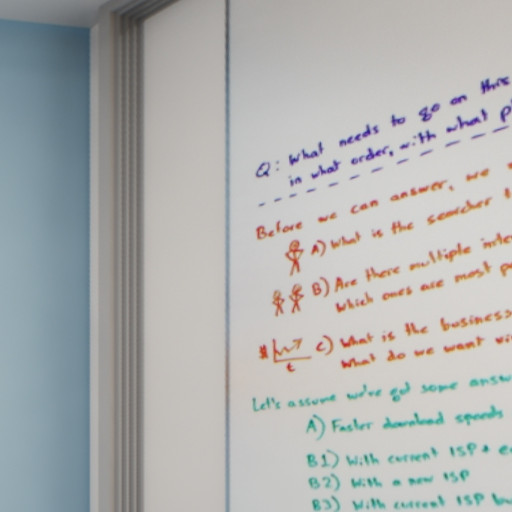 Q: What needs to go on this
in what order, with what
Before we can answer, we
A) What is the searcher
B) Are there multiple
Which ones are most
$ t C) What is the business
What do we want
Let's assume we've got some
A) Faster download speeds
B1) With current ISP +
B2) With a new ISP
B3) With current ISP